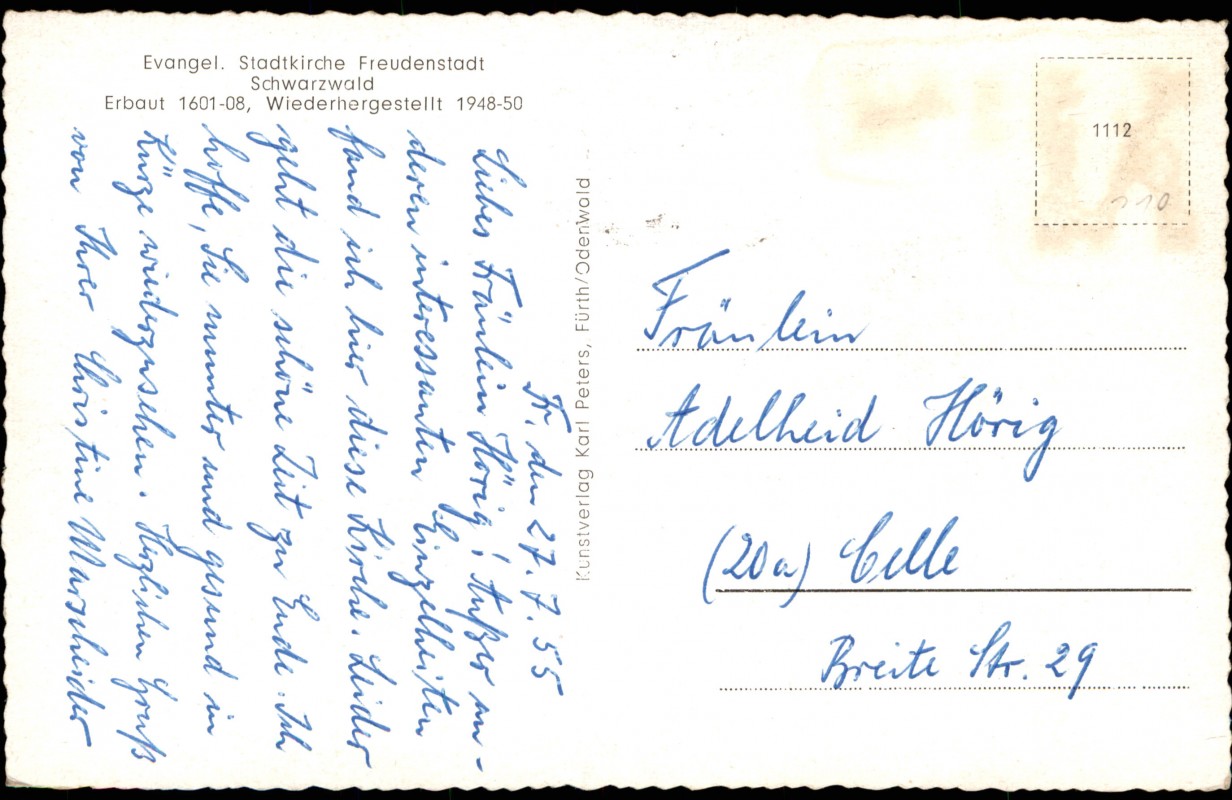 Evangel. Stadtkirche Freudenstadt
Schwarzwald
Erbaut 1601-08, Wiederhergestellt 1948-50
Fr. den 27.7.55
Liebes Fräulein Hörig! Außer an-
deren interessanten Einzelheiten
fand ich hier diese Kirche. Leider
geht die schöne Zeit zu Ende. Ich
hoffe, Sie munter und gesund in
Kürze wiederzusehen. Herzlichen Gruß
von Ihrer Christine Marscheider
Kunstverlag Karl Peters, Fürth/Odenwald
1112
110
Fräulein
Adelheid Hörig
(20a) Celle
Breite Str. 29